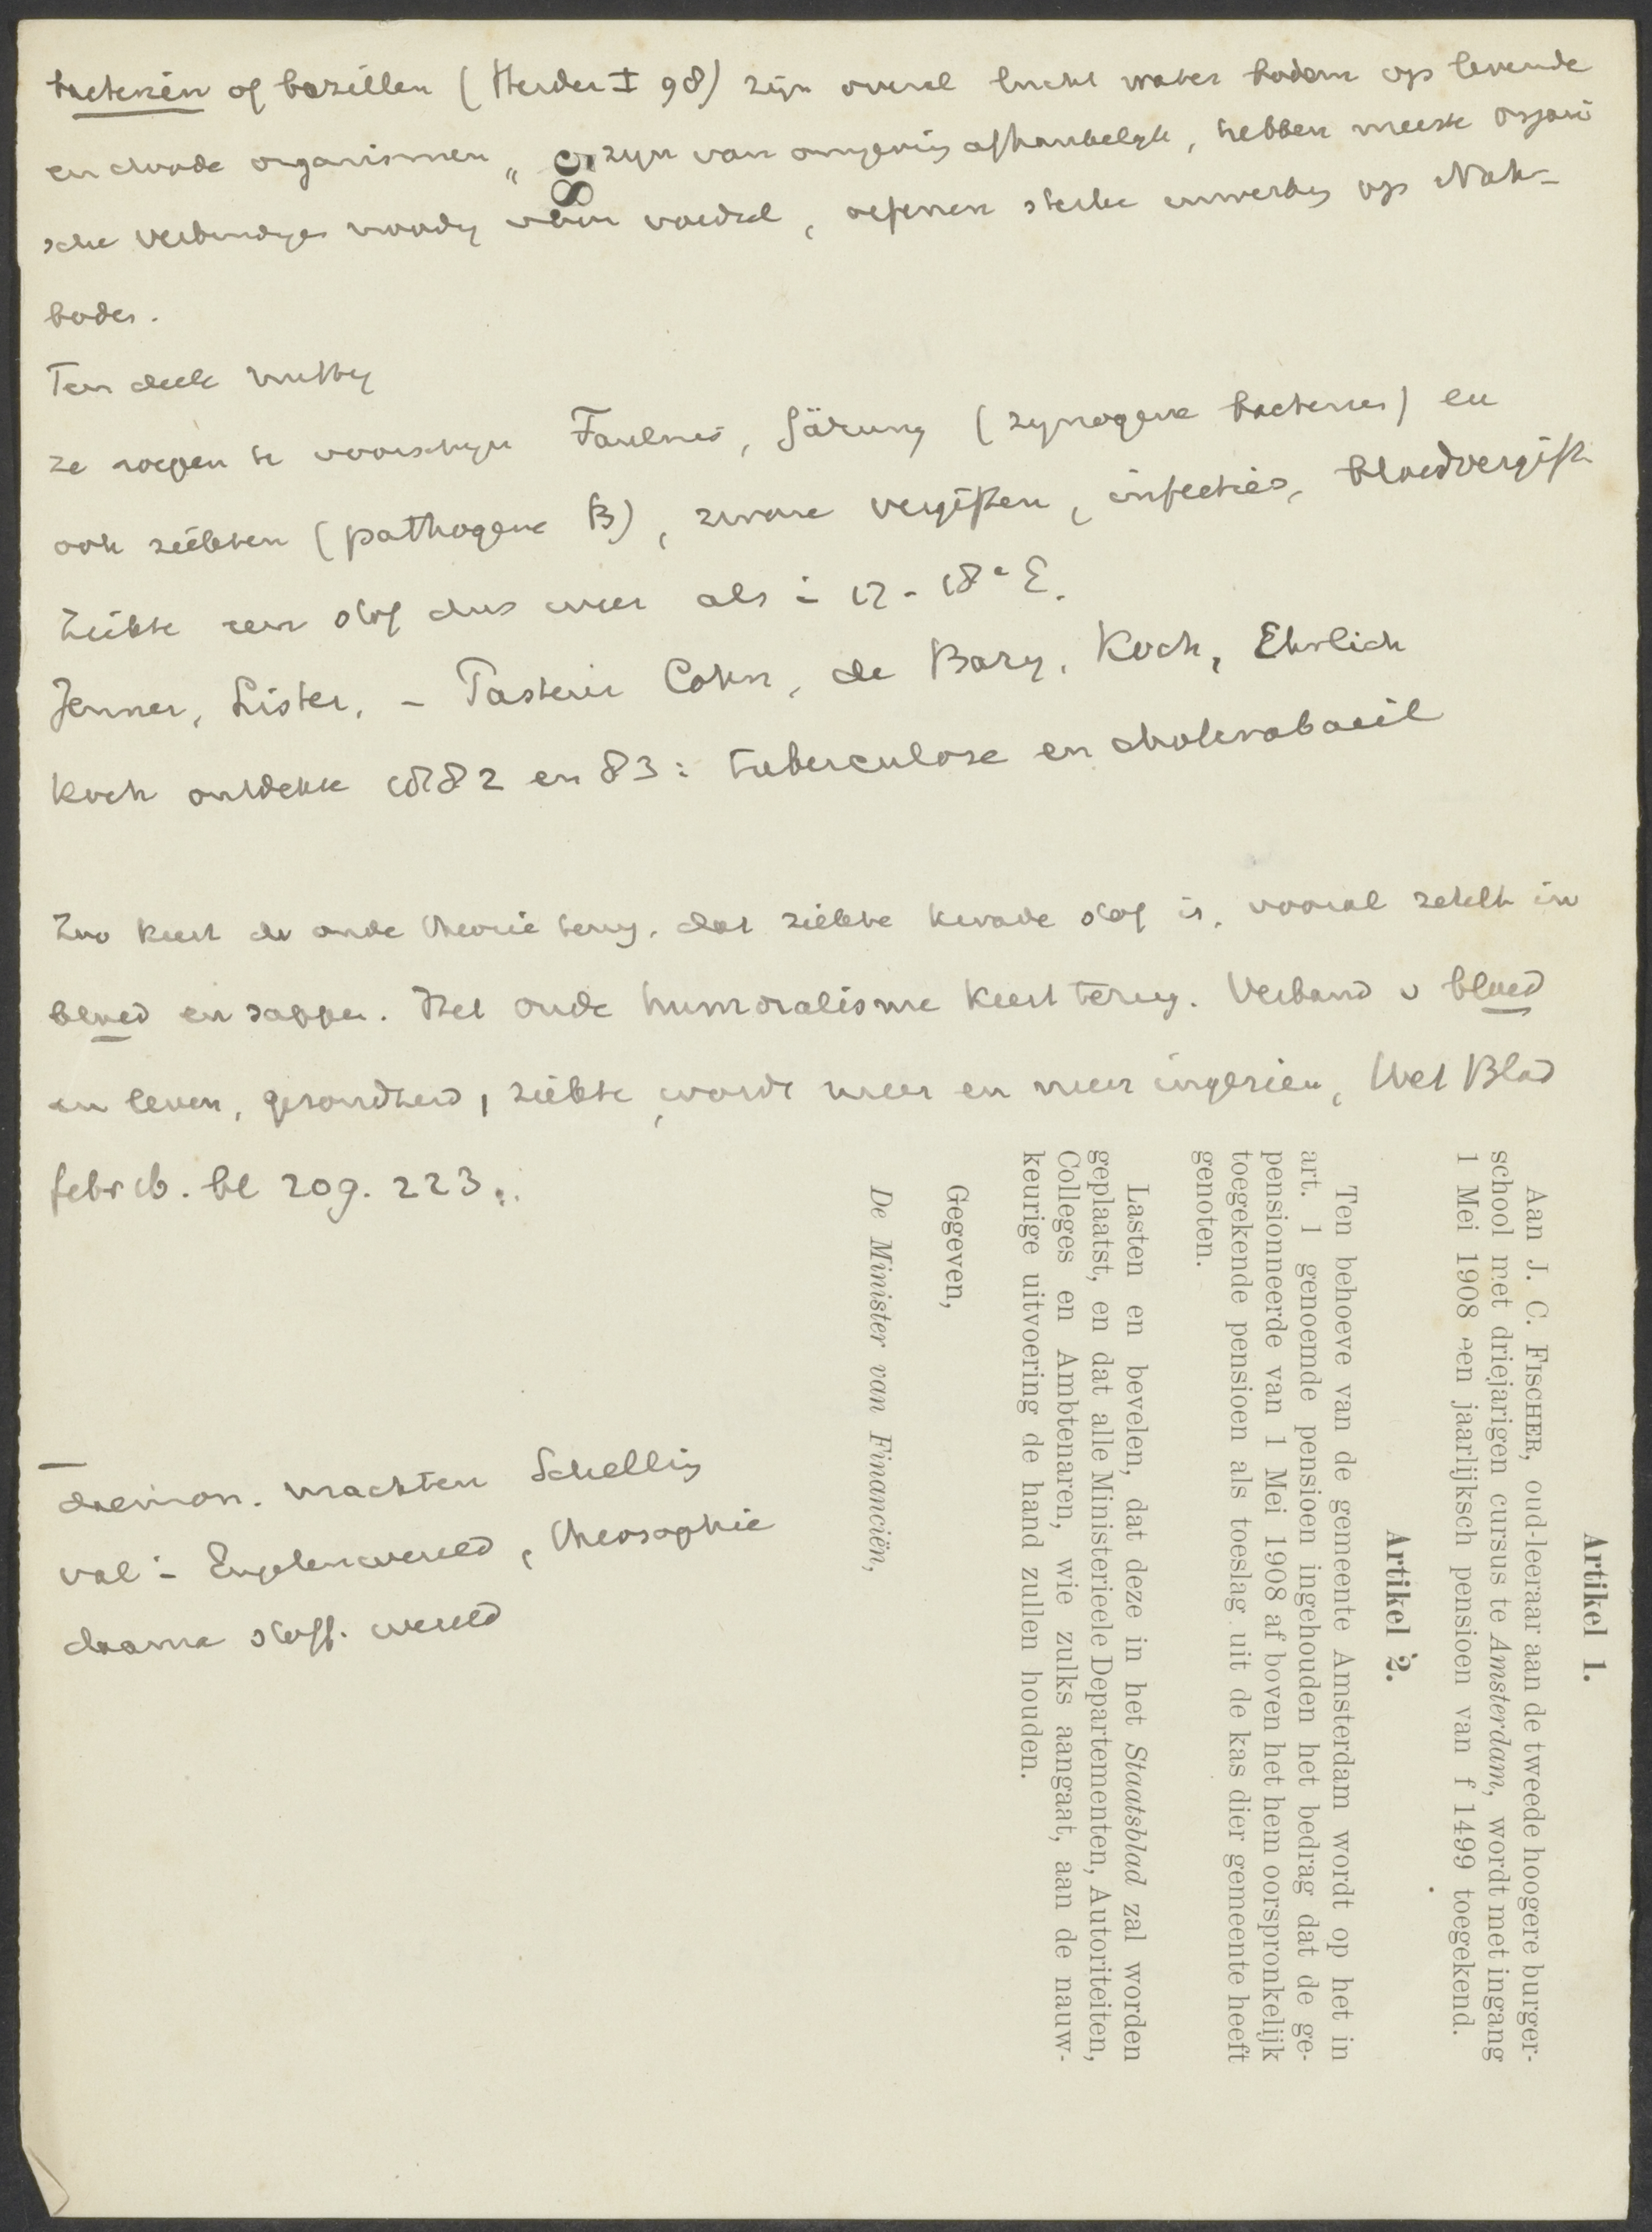 bacteriën of bazillen (Herder I 98) zijn overal lucht water bodem op levende
en doode organismen, zijn van omgeving afhankelijk, hebben meest organi
sche verbindingen noodig voor voedsel, oefenen sterke inwerking op Nähr-
boden.
Ten deele nuttig
ze roepen te voorschijn Faulnis, Gärung (zymogene bacteries) en
ook ziekten (pathogene B), zware vergiften, infecties, bloedvergift.
Ziekte een stof dus weer als i 17 - 18e E.
Jenner, Lister, - Pasteur Cohn, de Bary, Koch, Ehrlich
Koch ontdekte 1882 en 83: tuberculose en cholerabacil
Zoo keert de oude theorie terug, dat ziekte kwade stof is, vooral zetelt in
bloed en sappen. Het oude humoralisme keert terug. Verband v bloed
en leven, gezondheid, ziekte, wordt meer en meer ingezien, Wet Blad
febr 16. bl 209. 223.
daemon. machten Schelling
val i Engelenwereld, theosophie
daarna stoff. wereld
89
Artikel 1.
Aan J. C. FISCHER, oud-leeraar aan de tweede hoogere burger-
school met driejarigen cursus te Amsterdam, wordt met ingang
1 Mei 1908 een jaarlijksch pensioen van f 1499 toegekend.
Artikel 2.
Ten behoeve van de gemeente Amsterdam wordt op het in
art. 1 genoemde pensioen ingehouden het bedrag dat de ge-
pensionneerde van 1 Mei 1908 af boven het hem oorspronkelijk
toegekende pensioen als toeslag uit de kas dier gemeente heeft
genoten.
Lasten en bevelen, dat deze in het Staatsblad zal worden
geplaatst, en dat alle Ministerieele Departementen, Autoriteiten,
Colleges en Ambtenaren, wie zulks aangaat, aan de nauw-
keurige uitvoering de hand zullen houden.
Gegeven,
De Minister van Financiën,